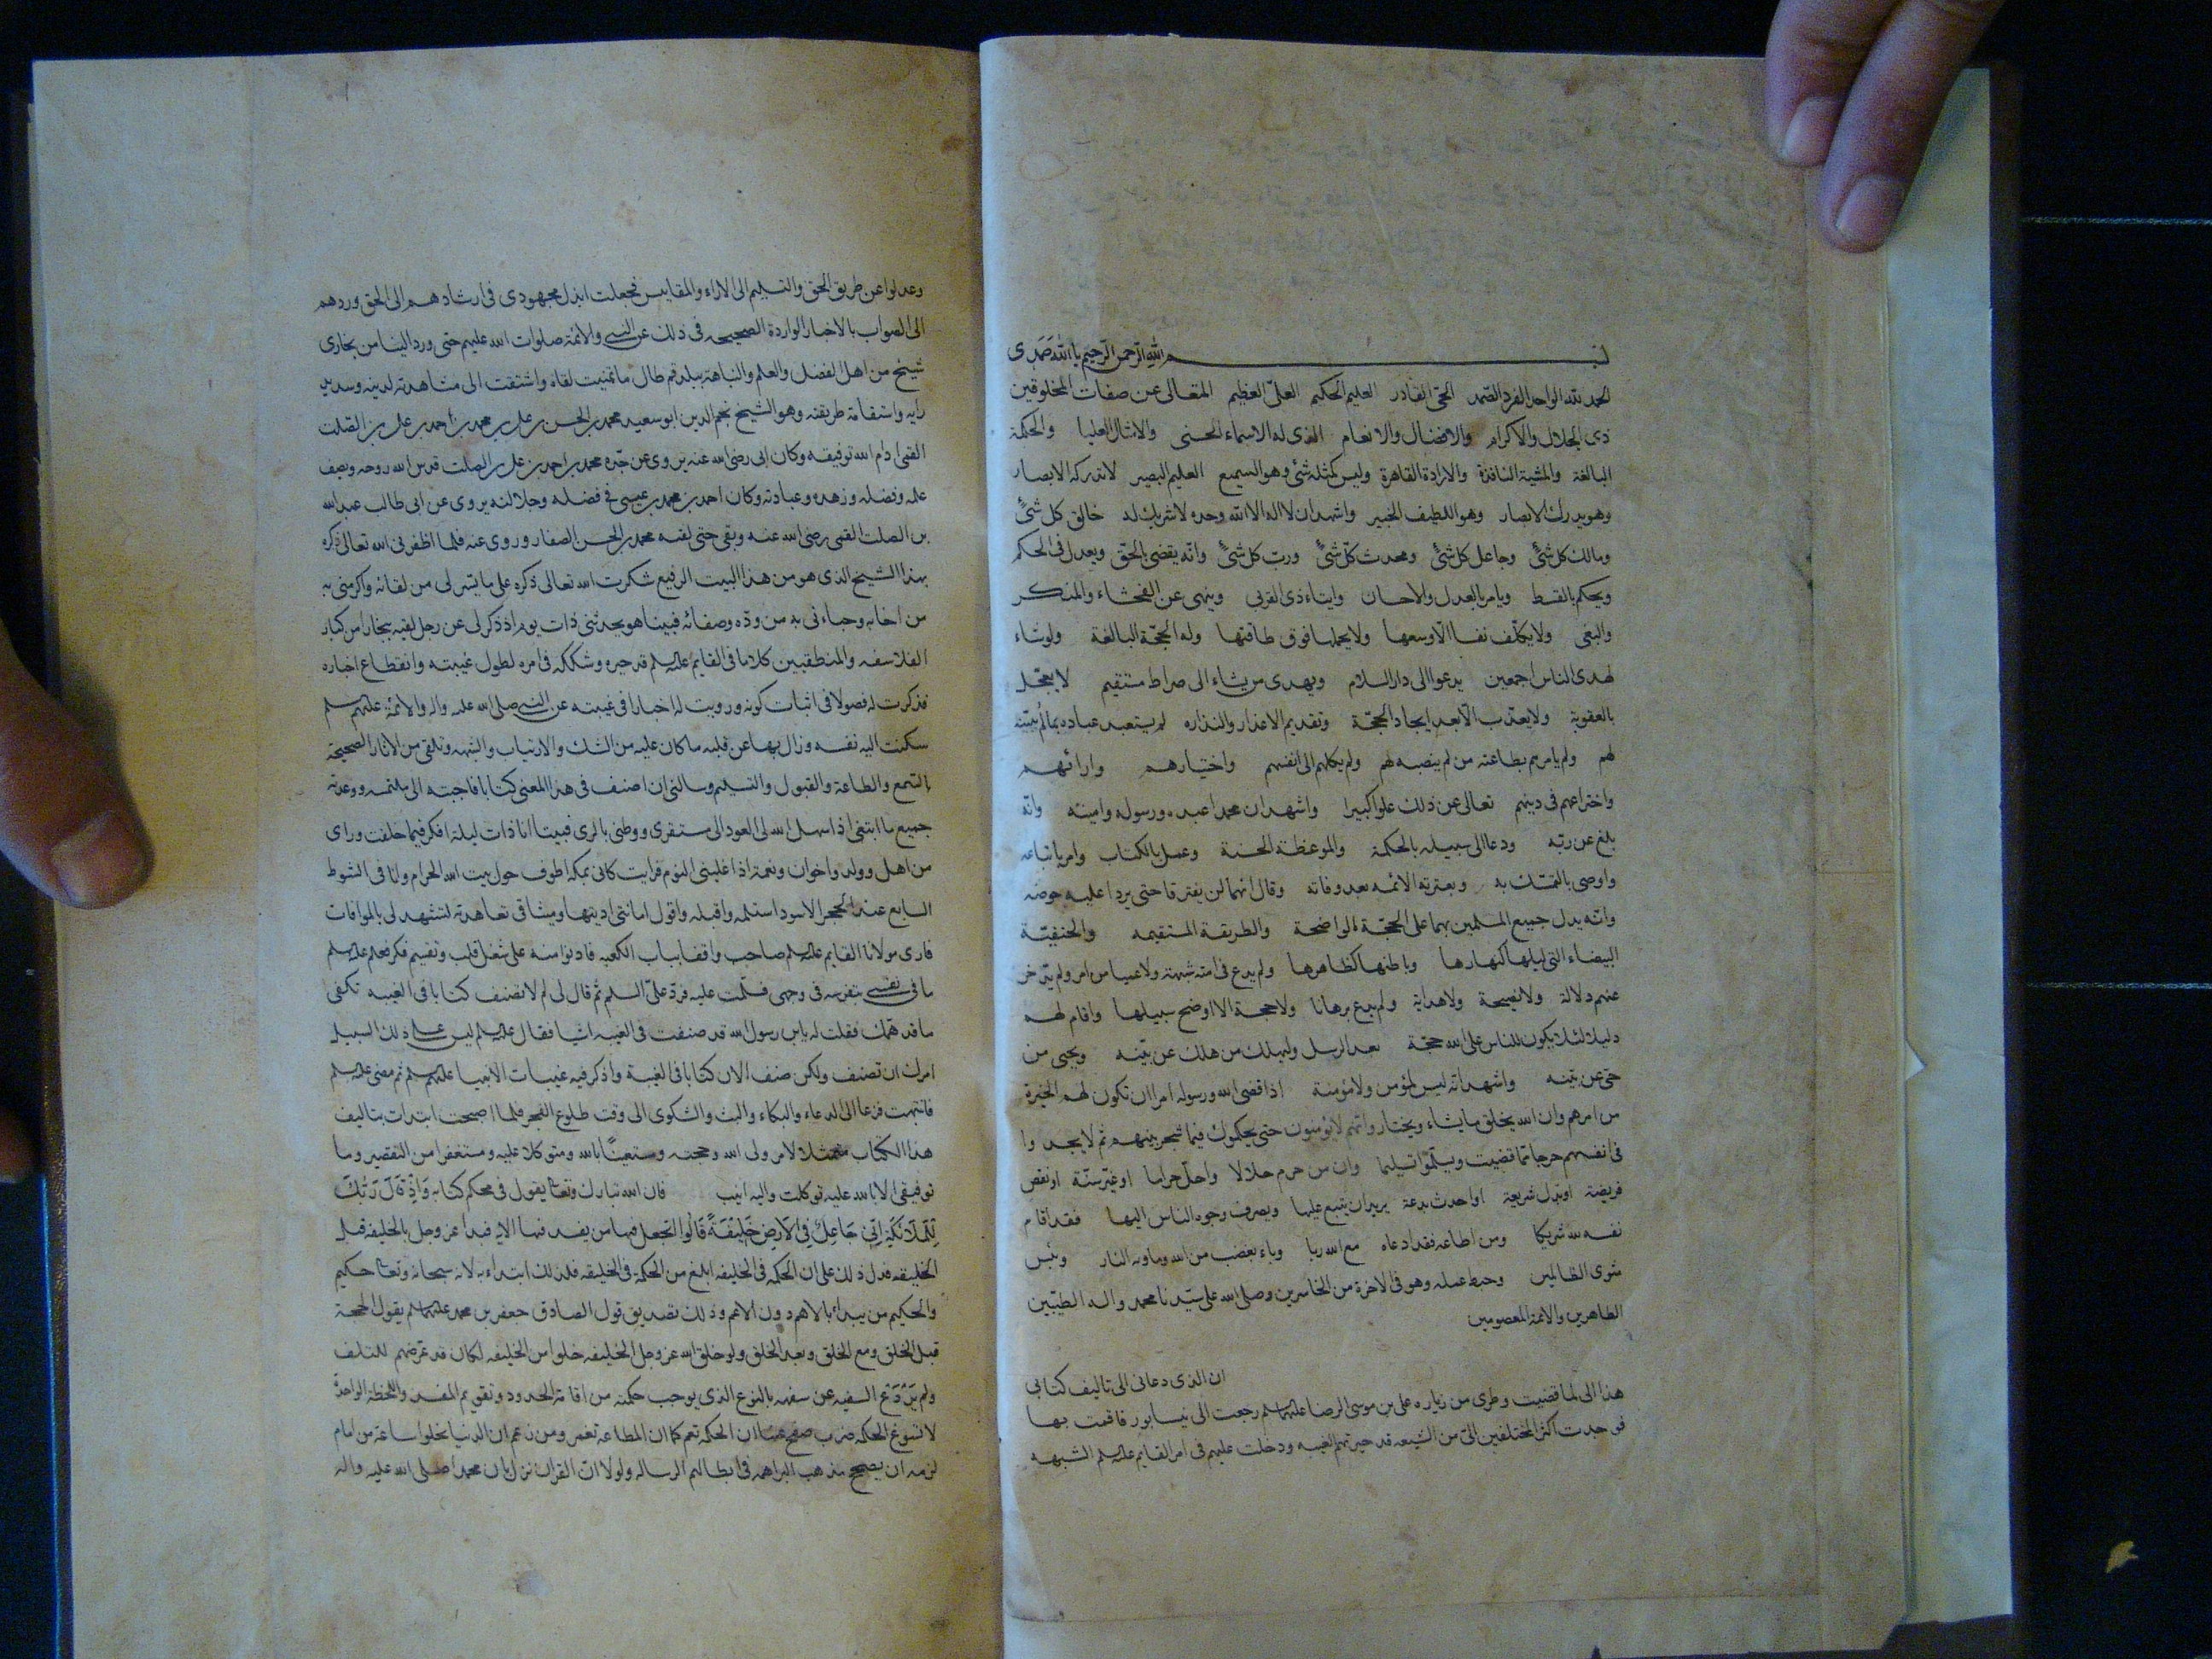 بسم الله الرحمن الرحيم يا الله صمدى
الحمد لله الواحد الفرد الصمد الحى القادر العليم الحكيم العلىّ العظيم المتعالى عن صفات المخلوقين
ذى الجلال والاكرام والافضال والانعام الذى له الاسماء الحسنى والامثال العليا والحكمة
البالغة والمشية النافذة والارادة القاهرة وليس كمثله شئ وهو السميع العليم البصير لا تدركه الابصار
وهو يدرك الابصار وهو اللطيف الخبير واشهد ان لا اله الا الله وحده لا شريك له خالق كل شئٍ
ومالك كل شئٍ وجاعل كل شئٍ ومحدث كلّ شئٍ ورب كل شئٍ وانّه يقضى بالحقّ ويعدل فى الحكم
ويحكم بالقسط ويامر بالعدل والاحسان وايتاء ذى القربى وينهى عن الفحشاء والمنكر
والبغى ولا يكلّف نفسا الّا وسعها ولا يحملها فوق طاقتها وله الحجّة البالغة ولو شاء
لهدى الناس اجمعين يدعوا الى دار السلام ويهدى من يشاء الى صراط مستقيم لا يعجّل
بالعقوبة ولا يعذّب الّا بعد ايجاد الحجّة وتقديم الاعذار والنذاره لم يستعبد عباده بما لم يبيّنه
لهم ولم يامرهم بطاعته من لم ينصبه لهم ولم يكلهم الى انفسهم واختيارهم وارائهم
واختراعهم فى دينهم تعالى عن ذلك علوا كبيرا واشهد ان محمدا عبده ورسوله وامينه وانه
بلغ عن ربّه ودعا الى سبيله بالحكمة والموعظة الحسنة وعمل بالكتاب وامر باتباعه
واوصى بالتمسّك به وبعترته الائمه بعد وفاته وقال انهما لن يفترقا حتى يردا عليه حوضه
وانّه يدل جميع المسلمين بهما على الحجّة الواضحة والطريقة المستقيمه والحنفيّة
البيضاء التى ليلها كنهارها وباطنها كظاهرها ولم يدع فى امته شبهة ولا عميا من امر ولم يدّخر
عنهم دلالة ولا نصيحة ولا هداية ولم يدع برهانا ولا حجة الا اوضح سبيلها واقام لهم
دليلا لئلا يكون للناس على الله حجّة بعد الرسل وليهلك من هلك عن بيّنه ويحيى من
حىّ عن بيّنه واشهد انّه ليس لمؤمن ولا مؤمنة اذا قضى الله ورسوله امرا ان تكون لهم الخيرة
من امرهم وان الله يخلق ما يشاء ويختار وانهم لا يؤمنون حتى يحكموك فيما شجر بينهم ثم لا يجدوا
فى انفسهم حرجا ممّا قضيت ويسلّموا تسليما وان من حرم حلالا واحلّ حراما او غيّر سنّة او نقص
فريضة او بدل شريعة او احدث بدعة يريد ان يتبع عليها ويصرف وجوه الناس اليها فقد اقام
نفسه لله شريكا ومن اطاعه فقد ادعاه مع الله ربا وباء بغضب من الله وماويه النار وبئس
مثوى الظالمين وحبط عمله وهو فى الاخرة من الخاسرين وصلى الله على سيّدنا محمد واله الطيبّين
الطاهرين والائمة المعصومين
ان الذى دعانى الى تاليف كتابى
هذا انى لما قضيت وطرى من زياره على بن موسى الرضا عليهما السلم رجعت الى نيسابور فاقمت بها
فوجدت اكثر المختلفين الىّ من الشيعه قد حيرتهم الغيبه ودخلت عليهم فى امر القايم عليه السلم الشبهه
وعدلوا عن طريق الحق والتسليم الى الاراء والمقاييس فجعلت ابذل مجهودى فى ارشادهم الى الحق وردهم
الى الصواب بالاخبار الواردة الصحيحه فى ذلك عن النبى والائمّة صلوات الله عليهم حتى ورد الينا من بخارى
شيخ من اهل الفضل والعلم والنباهة ببلد قم طال ما تمنيت لقاه واشتقت الى مشاهدته لدينه وسديد
رايه واستقامة طريقته وهو الشيخ نجم الدين ابو سعيد محمد بن الحسن بن على بن محمد بن احمد بن على بن الصّلت
القمى ادام الله توفيقه وكان ابى رضى الله عنه يروى عن جدّه محمد بن احمد بن على بن الصلت قدس الله روحه ويصف
علمه وفضله وزهده وعبادته وكان احمد بن محمد بن عيسى فى فضله وجلالته يروى عن ابى طالب عبد الله
بن الصلت القمى رضى الله عنه وبقى حتى لقيه محمد بن الحسن الصفار وروى عنه فلما اظفرنى الله تعالى ذكره
بهذا الشيخ الذى هو من هذا البيت الرفيع شكرت الله تعالى ذكره على ما يسّر لى من لقائه واكرمنى به
من اخائه وحبانى به من ودّه وصفائه فبينا هو يحدثنى ذات يوم اذ ذكر لى عن رجل لقيه ببخارا من كبار
الفلاسفه والمنطقيين كلاما فى القايم عليه السلم قد حيره وشككه فى امره لطول غيبته وانقطاع اخباره
فذكرت له فصولا فى اثبات كونه ورويت له اخبارا فى غيبته عن النبى صلى الله عليه واله والائمّة عليهم السلم
سكنت اليه نفسه وزال بها عن قلبه ما كان عليه من الشك والارتياب والشبهه وتلقى من الاثار الصحيحة
بالسّمع والطاعة والقبول والتسليم وسالنى ان اصنف فى هذا المعنى كتابا فاجبته الى ملتمسه ووعدته
جميع ما ابتغى اذا سهل الله لى العود الى مستقرى ووطنى بالرى فبينا انا ذات ليلة افكر فيما خلفت وراى
من اهل وولد واخوان ونعمة اذا غلبنى النوم فرايت كانى بمكه اطوف حول بيت الله الحرام وانا فى الشوط
السابع عند الحجر الاسود استلمه واقبله واقول امانتى اديتها وميثاقى تعاهدته لتشهد لى بالموافات
فارى مولانا القايم عليه السلم صاحب واقفا بباب الكعبه فادنوا منه على شغل قلب وتقسيم فكر فعلم عليه السلم
ما فى نفسى بتفرسه فى وجهى فسلّمت عليه فردّ علىّ السلم ثم قال لى لم لا تصنف كتابا فى الغيبه تكفى
ما قد همّك فقلت له يا بن رسول الله قد صنفت فى الغيبه اشيا فقال عليه السلم ليس على ذلك السبيل
امرك ان تصنف ولكن صنف الان كتابا فى الغيبة واذكر فيه غيبات الانبيا عليهم السلم ثم مضى عليه السلم
فانتبهت فزعا الى الدعاء والبكاء والبث والشكوى الى وقت طلوع الفجر فلما اصبحت ابتدات بتاليف
هذا الكتاب ممتثلا لامر ولى الله وحجته ومستعينًا بالله ومتوكلا عليه ومستغفرا من التقصير وما
توفيقى الا بالله عليه توكلت واليه انيب فان الله تبارك وتعالى يقول فى محكم كتابه وَاِذْ قَالَ رَبُّكَ
لِلْمَلَائكَةِ اِنِّى جَاعِلٌ فِى الْاَرضِ خَلِيْفَةً قَالُوا اتجعل فيها من يفسد فيها الايه فبدا عز وجل بالخليفه قبل
الخليقه فدل ذلك على ان الحكمه فى الخليفه ابلغ من الحكمة فى الخليقه فلذلك ابتداء به لانه سبحانه وتعالى حكيم
والحكيم من يبدأ بالاهم دون الاعم وذلك تصديق قول الصادق جعفر بن محمد عليهما السلم يقول الحجة
قبل الخلق ومع الخلق وبعد الخلق ولو خلق الله عز وجل الخليقه خلوا من الخليفه لكان قد عرّضهم للتلف
ولم يَرْدَع السفيه عن سفهه بالنوع الذى يوجب حكمته من اقامة الحدود وتقويم المفسد واللحظة الواحدة
لا تسوغ الحكمه ضرب صفح عنها ان الحكمه تعم كما ان الطاعة تعم ومن زعم ان الدنيا تخلوا ساعة من امام
لزمه ان يصحح مذهب البراهمه فى ابطالهم الرساله ولولا انّ القران نزل بان محمدا صلى الله عليه واله